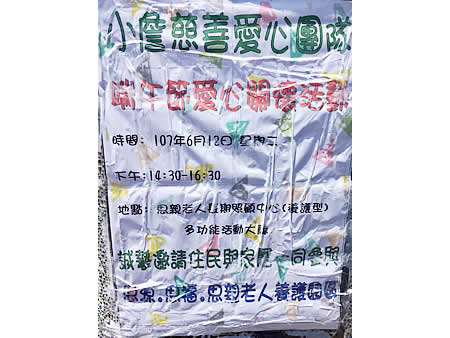 小詹慈善愛心團隊
端午節愛心關懷活動
時間: 107年6月12日 星期二
下午:14:30-16:30
地點: 思親老人長期照顧中心(養護型)
多功能活動大廳
誠摯邀請住民與家屬一同參與
思源。思福。思親老人養護園區